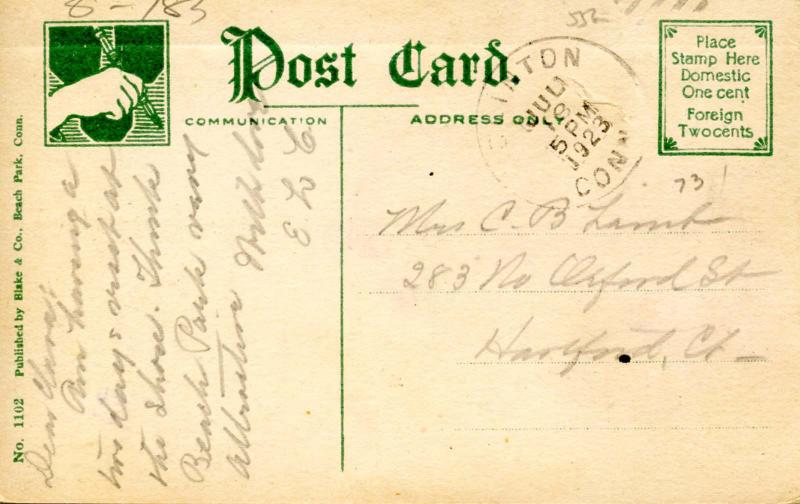 8-183
Post Card.
COMMUNICATION
ADDRESS ONLY
Place
Stamp Here
Domestic
One cent
Foreign
Two cents
CLINTON
JUL
5 PM
1923
CONN
73
No. 1102 Published by Blake & Co., Beach Park, Conn.
Dear Clara:
Am having a
two days visit at
the shore. Think
Beach Park very
attractive With love
E L C
Mrs C. B Lamb
283 No Oxford St
Hartford, Ct